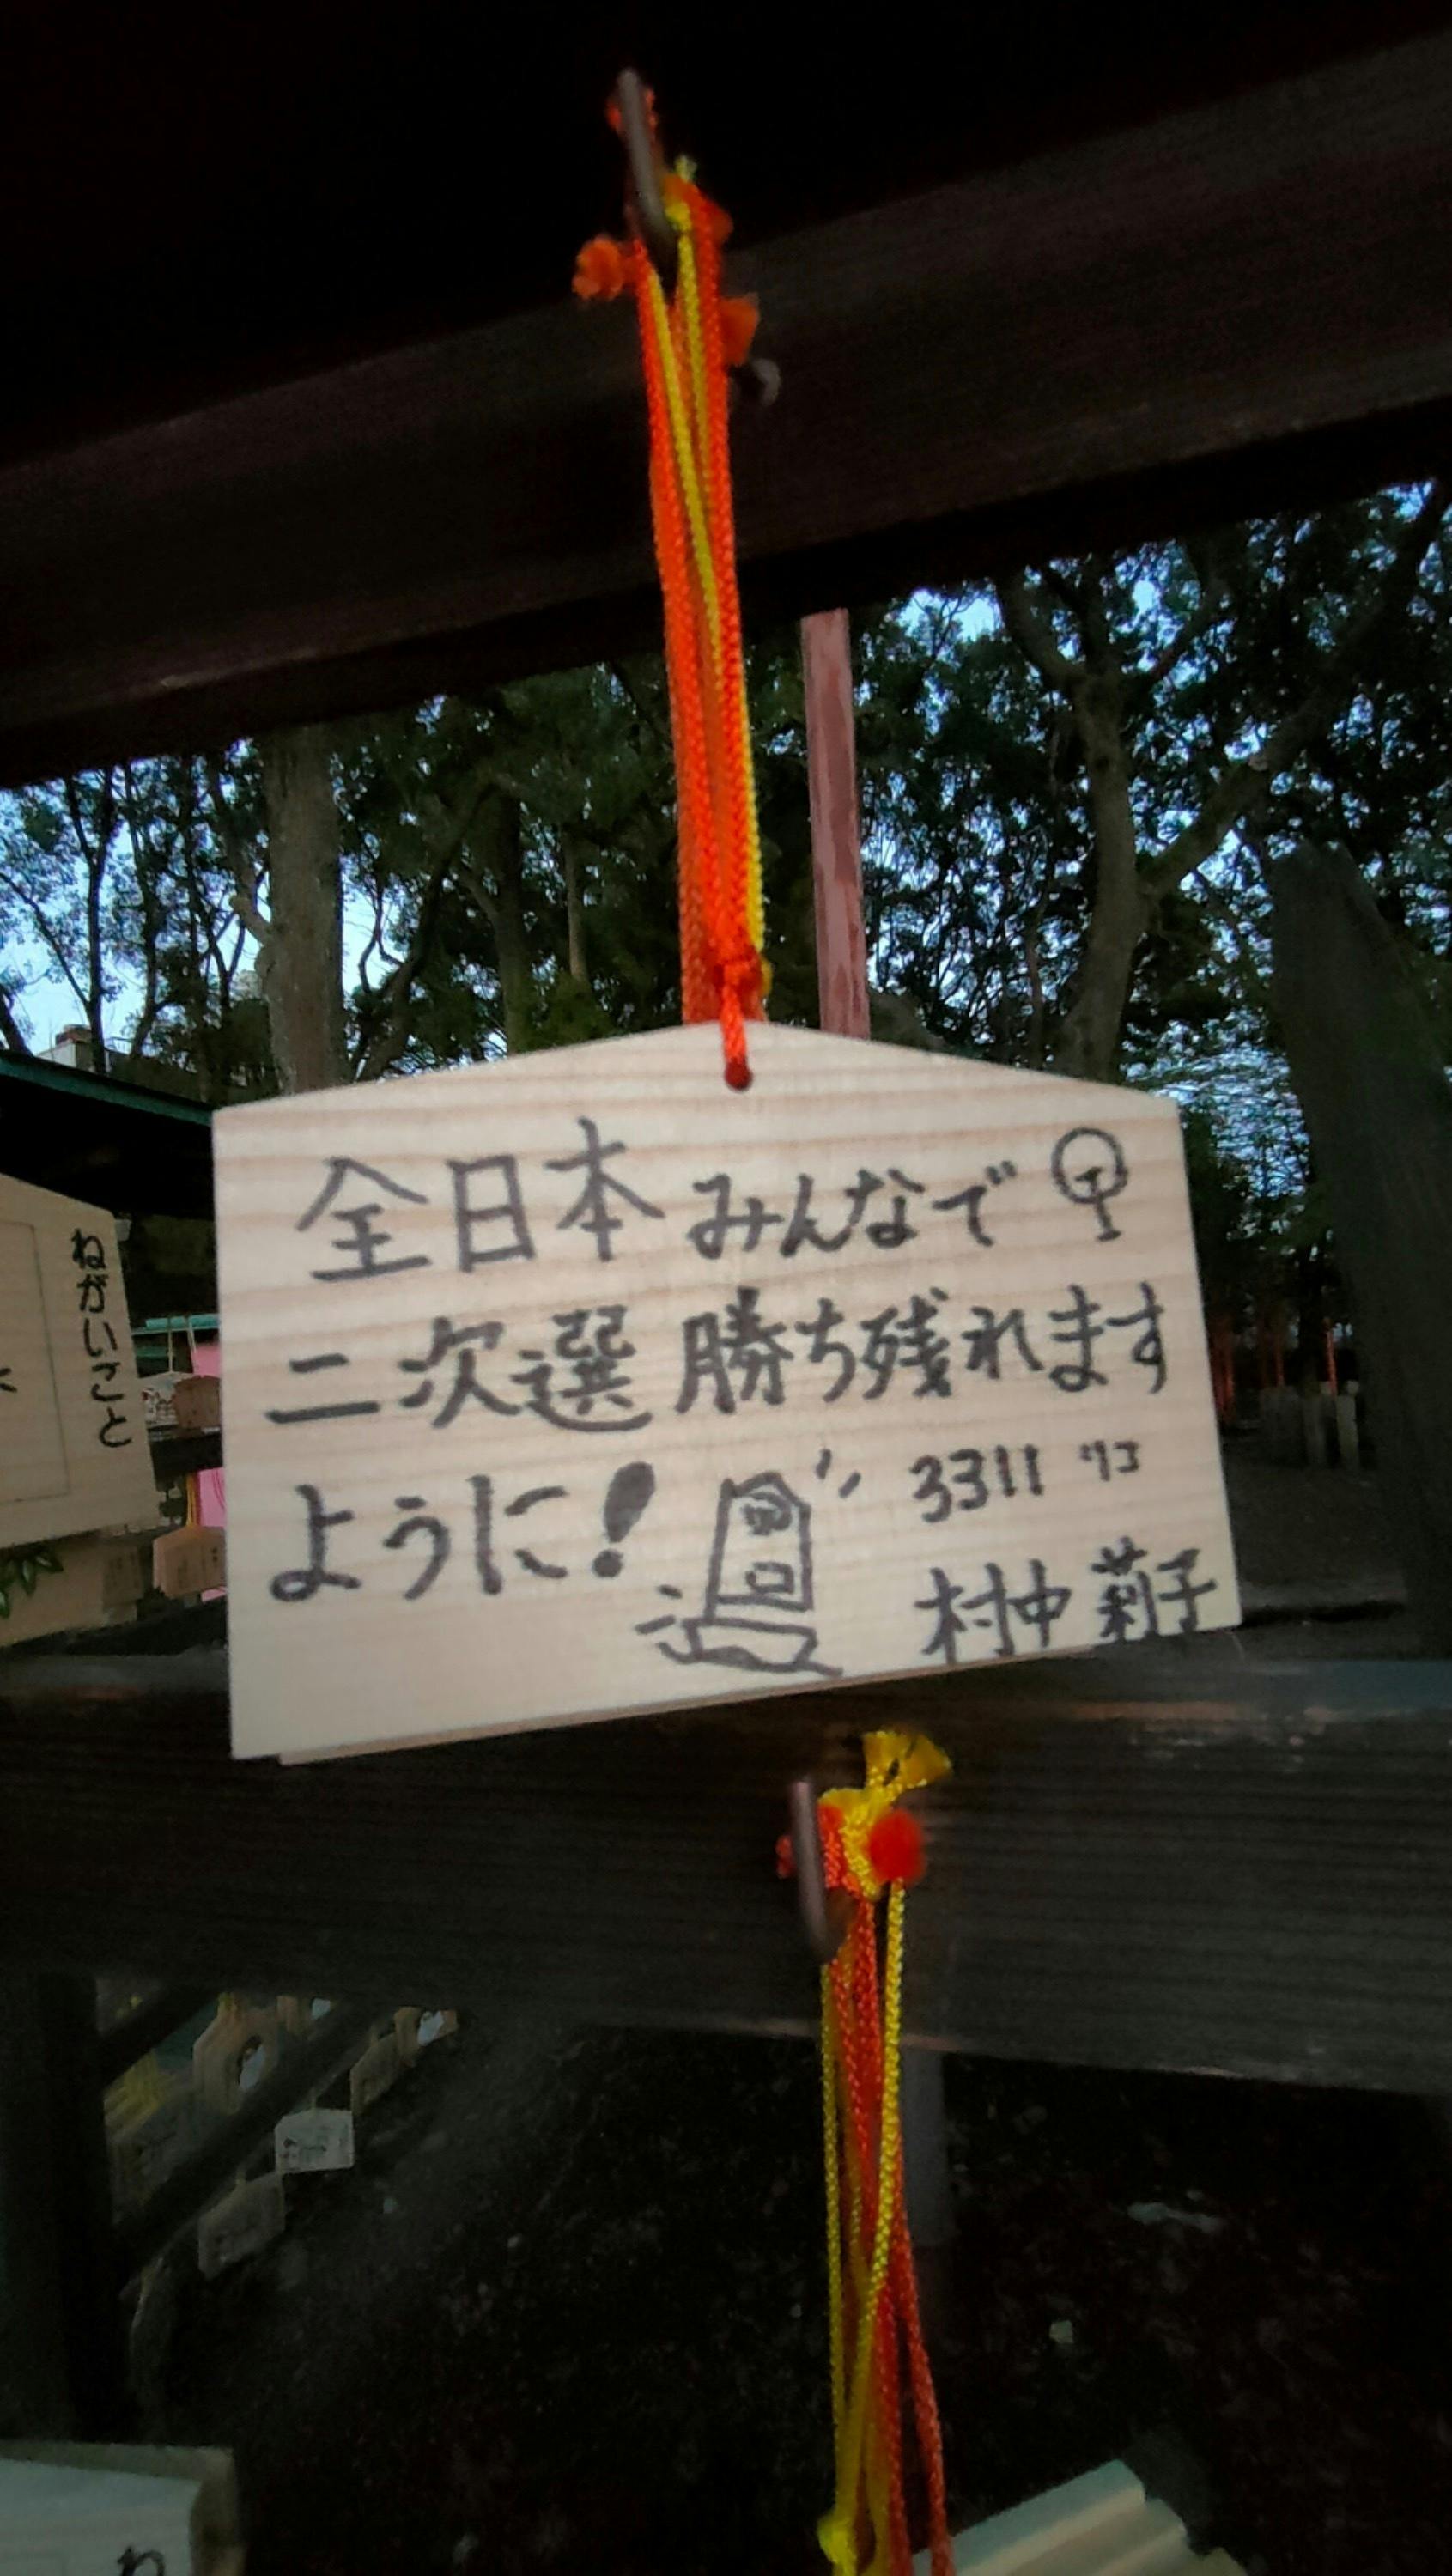 全日本 みんなで
二次選 勝ち残れます
ように!
3311 ワコ
村中 莉子
ねがいこと
わ